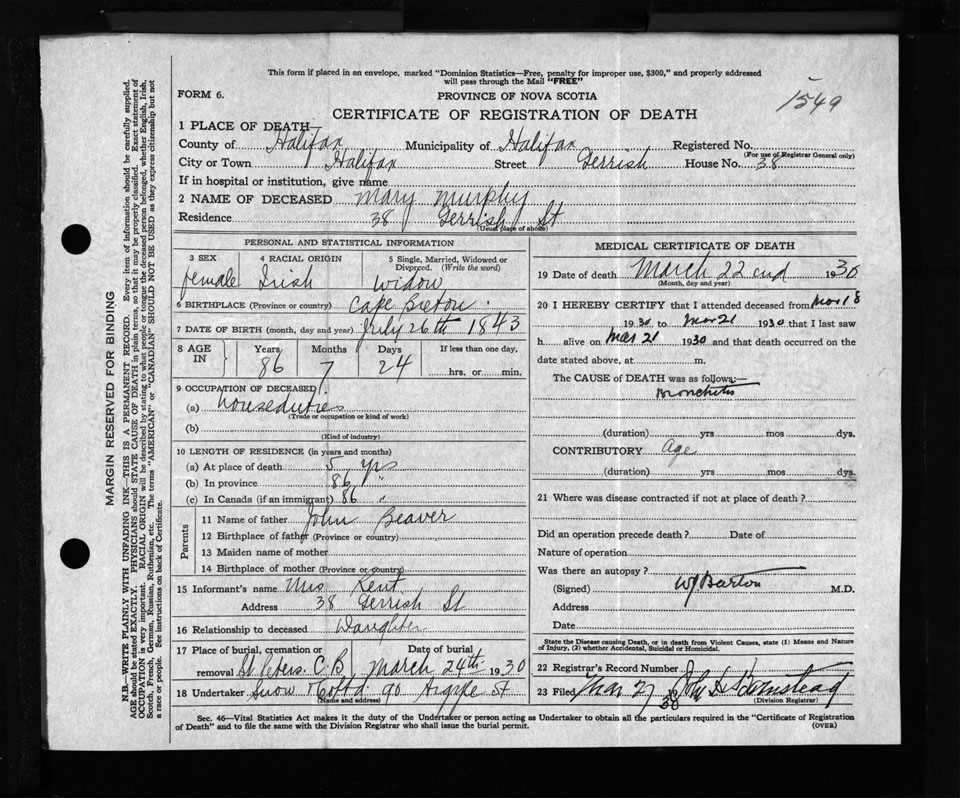 This form if placed in an envelope, marked "Dominion Statistics—Free, penalty for improper use, $300," and properly addressed
will pass through the Mail "FREE"
FORM 6.
PROVINCE OF NOVA SCOTIA
1549
CERTIFICATE OF REGISTRATION OF DEATH
1 PLACE OF DEATH—
County of Halifax Municipality of Halifax Registered No.
(For use of Registrar General only)
City or Town Halifax Street Gerrish House No. 38
If in hospital or institution, give name
2 NAME OF DECEASED Mary Murphy
Residence 38 Gerrish St
(Usual place of abode)
PERSONAL AND STATISTICAL INFORMATION
3 SEX 4 RACIAL ORIGIN 5 Single, Married, Widowed or
Divorced. (Write the word)
female Irish Widow
6 BIRTHPLACE (Province or country) Cape Breton
7 DATE OF BIRTH (month, day and year) July 26th 1843
8 AGE IN Years Months Days If less than one day,
86 7 24 hrs. or min.
9 OCCUPATION OF DECEASED
(a) houseduties
(Trade or occupation or kind of work)
(b)
(Kind of industry)
10 LENGTH OF RESIDENCE (in years and months)
(a) At place of death 5 yrs
(b) In province 86 "
(c) In Canada (if an immigrant) 86 "
Parents
11 Name of father John Beaver
12 Birthplace of father (Province or country)
13 Maiden name of mother
14 Birthplace of mother (Province or country)
15 Informant's name Mrs Kent
Address 38 Gerrish St
16 Relationship to deceased Daughter
17 Place of burial, cremation or Date of burial
removal St. Peters. C.B. March 24th 1930
18 Undertaker Snow & Co Ltd. 90 Argyle St
(Name and address)
MEDICAL CERTIFICATE OF DEATH
19 Date of death March 22cnd 1930
(Month, day and year)
20 I HEREBY CERTIFY that I attended deceased from Mar 18
1930 to Mar 21 1930 that I last saw
h alive on Mar 21 1930 and that death occurred on the
date stated above, at m.
The CAUSE of DEATH was as follows:—
Bronchitis
(duration) yrs mos dys.
CONTRIBUTORY Age
(duration) yrs mos dys.
21 Where was disease contracted if not at place of death?
Did an operation precede death? Date of
Nature of operation
Was there an autopsy?
(Signed) W J Barton M.D.
Address
Date
State the Disease causing Death, or in death from Violent Causes, state (1) Means and Nature
of Injury, (2) whether Accidental, Suicidal or Homicidal.
22 Registrar's Record Number
23 Filed Mar 27 1930 John
(Division Registrar)
Sec. 46—Vital Statistics Act makes it the duty of the Undertaker or person acting as Undertaker to obtain all the particulars required in the "Certificate of Registration
of Death" and to file the same with the Division Registrar who shall issue the burial permit.
(OVER)
MARGIN RESERVED FOR BINDING
N.B.—WRITE PLAINLY WITH UNFADING INK—THIS IS A PERMANENT RECORD. Every item of information should be carefully supplied.
AGE should be stated EXACTLY. PHYSICIANS should STATE CAUSE OF DEATH in plain terms, so that it may be properly classified. Exact statement of
OCCUPATION is very important. RACIAL ORIGIN will be described by stating to what people or tongue the deceased person belonged, whether English, Irish,
Scotch, French, German, Russian, Ruthenian, etc. The terms "AMERICAN" or "CANADIAN" SHOULD NOT BE USED as they express citizenship but not
a race or people. See instructions on back of Certificate.